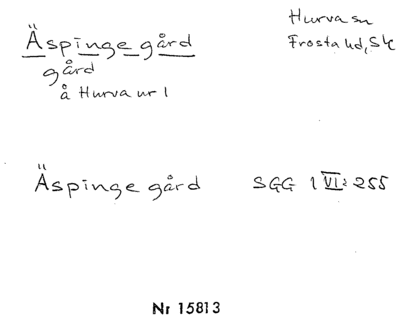 Äspinge gård
Hurva sn
Frosta hd, Sk
gård
å Hurva nr 1
Äspinge gård SGG 1 VI: 255
Nr 15813